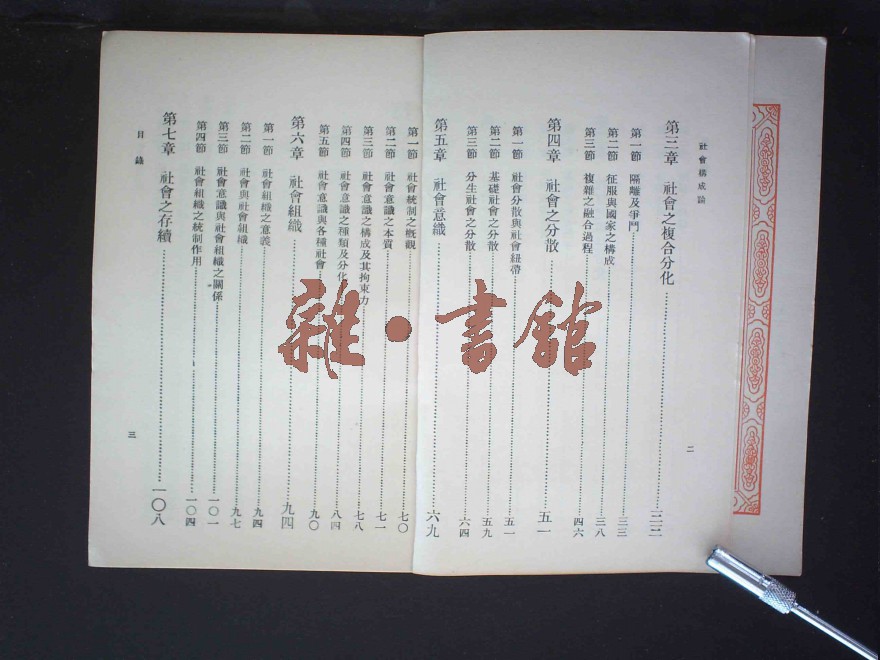 社會構成論
第三章 社會之複合分化……
第一節 隔離及爭鬥……三三
第二節 征服與國家之構成……三八
第三節 複雜之融合過程……四六
第四章 社會之分散……五一
第一節 社會分散與社會紐帶……五一
第二節 基礎社會之分散……五九
第三節 分生社會之分散……六四
第五章 社會意識……六九
二
第一節 社會統制之槪觀……七〇
第二節 社會意識之本質……七一
第三節 社會意識之構成及其拘束力……七八
第四節 社會意識之種類及分化……八四
第五節 社會意識與各種社會……九〇
第六章 社會組織……九四
第一節 社會組織之意義……九四
第二節 社會與社會組織……九七
第三節 社會意識與社會組織之關係……一〇一
第四節 社會組織之統制作用……一〇四
第七章 社會之存續……一〇八
目錄
三
雜·書館